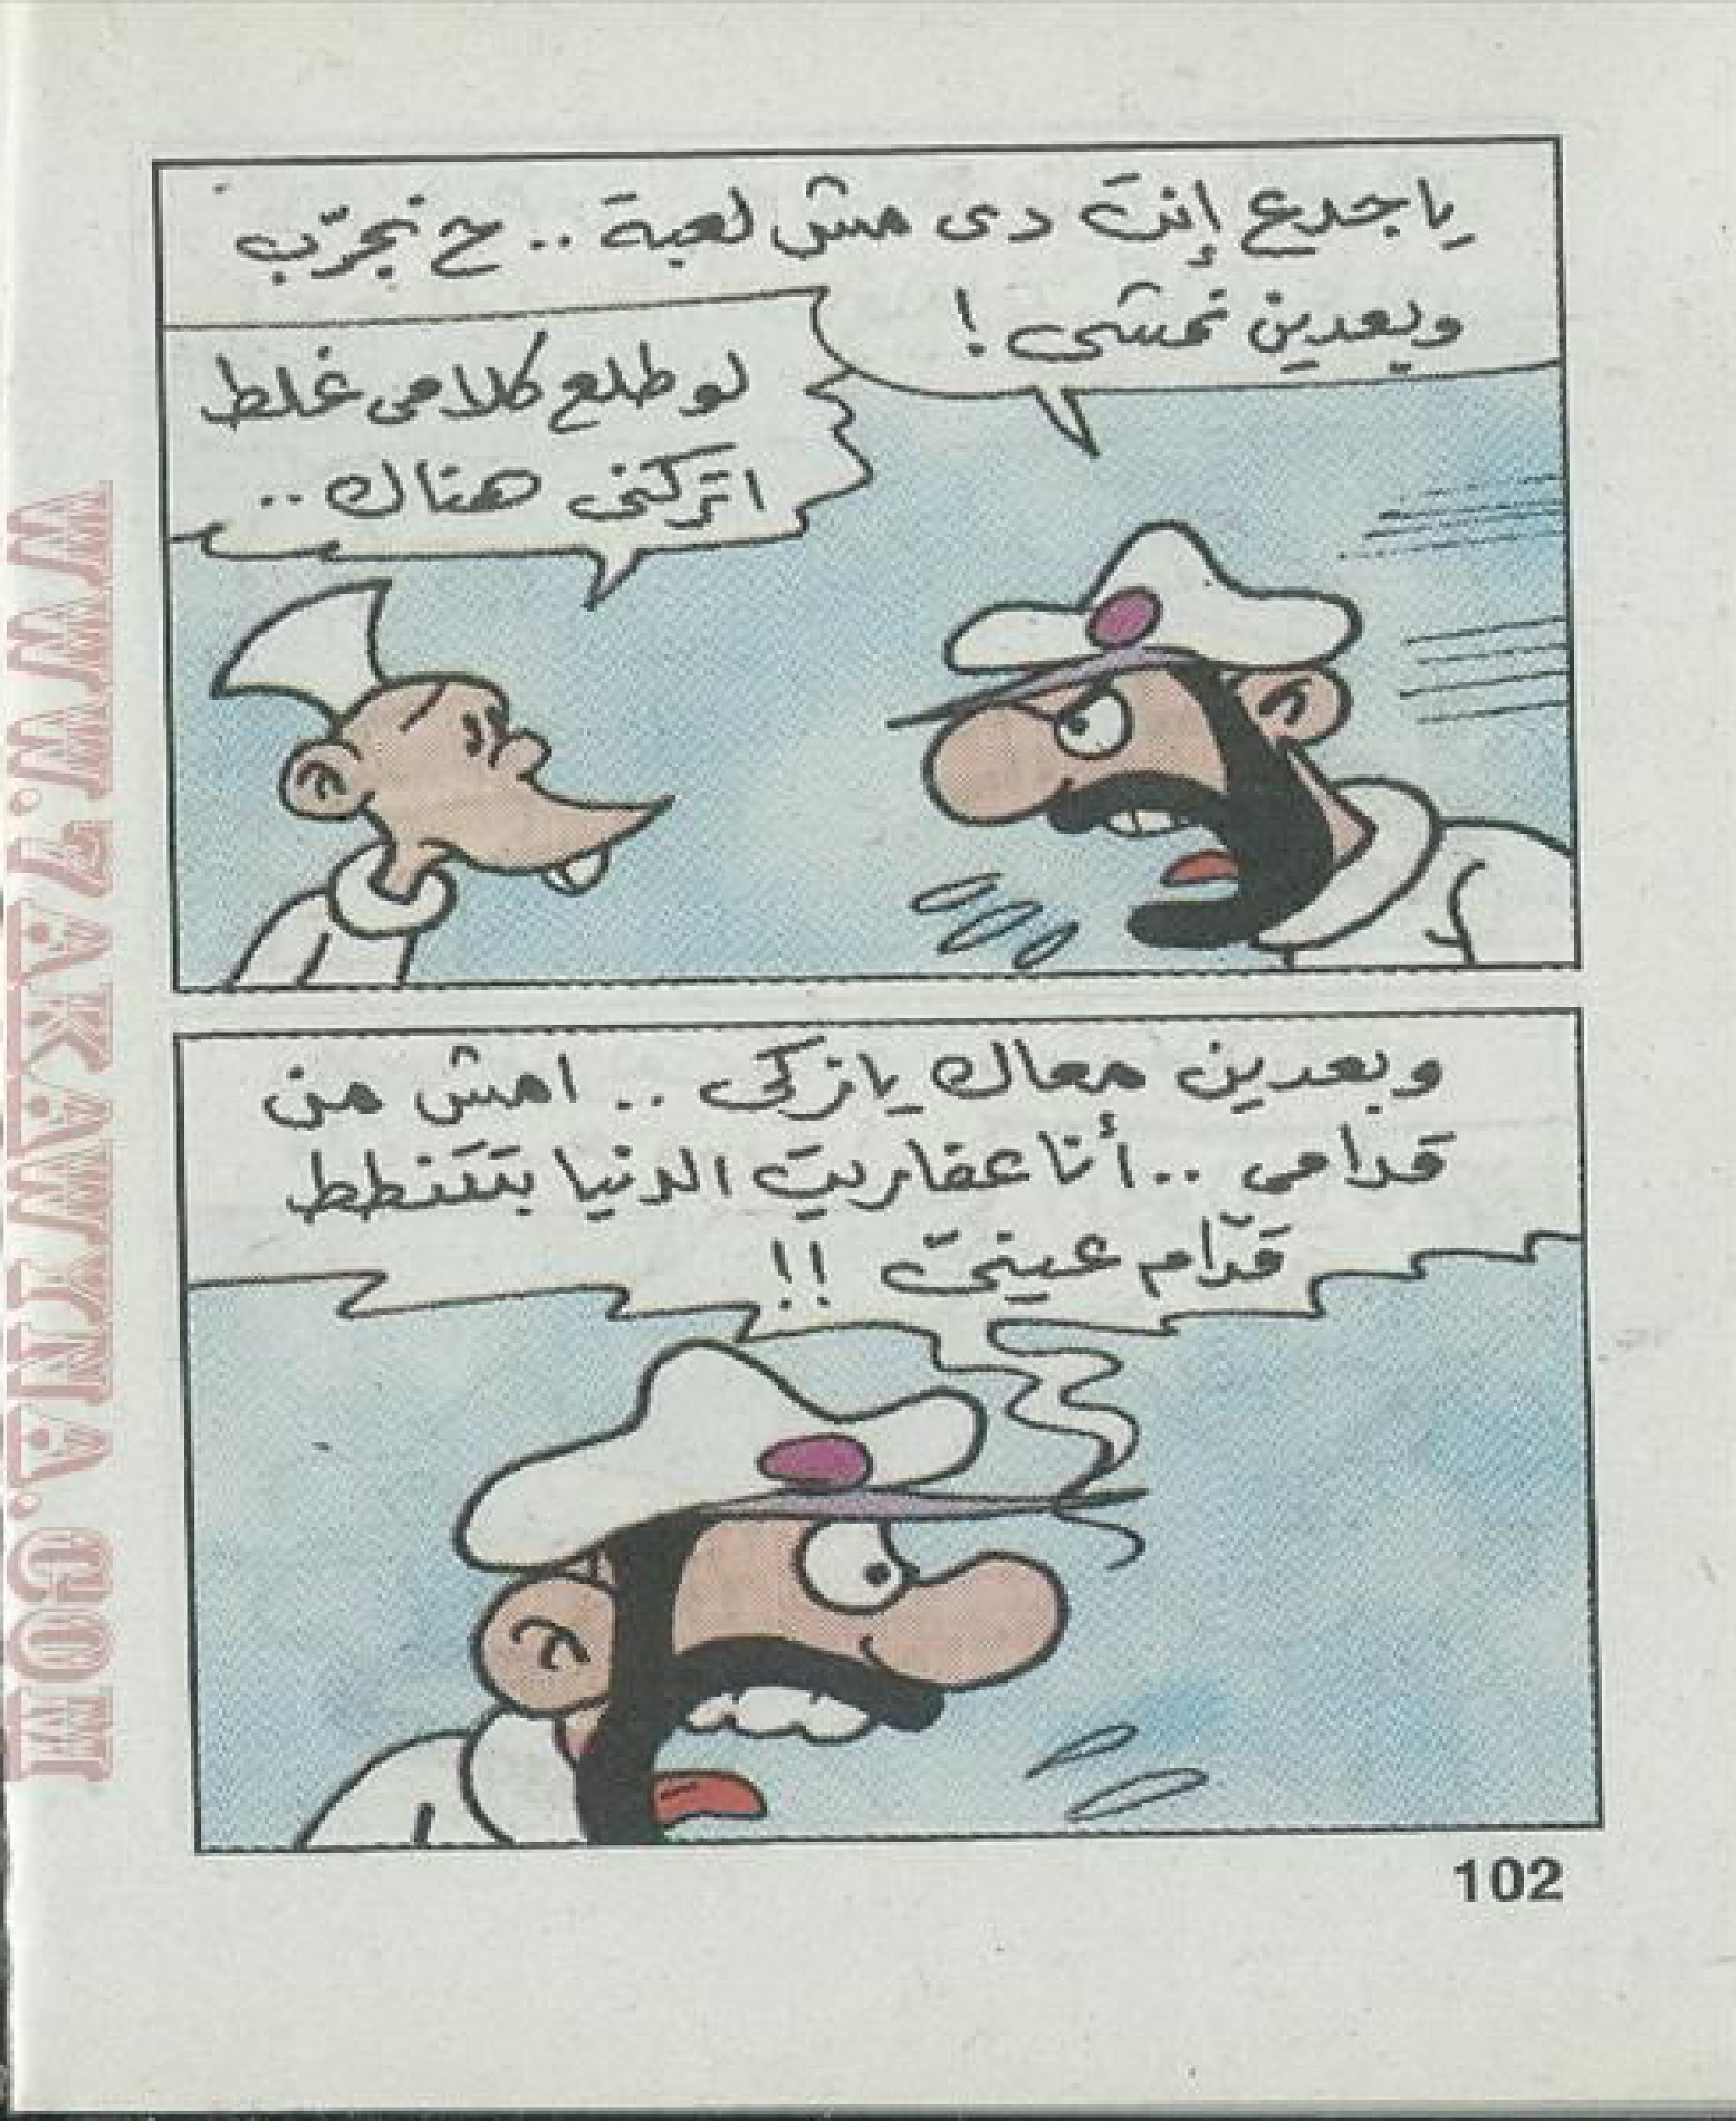 ياجدع إنت دى مش لعبة .. ح نجرّب
وبعدين نمشى !
لو طلع كلامى غلط
اتركنى هناك ..
وبعدين معاك يازكى .. امش من
قدامى .. أنا عفاريت الدنيا بتتنطط
قدّام عينىّ !!
102
WWW.7AKAWINA.COM